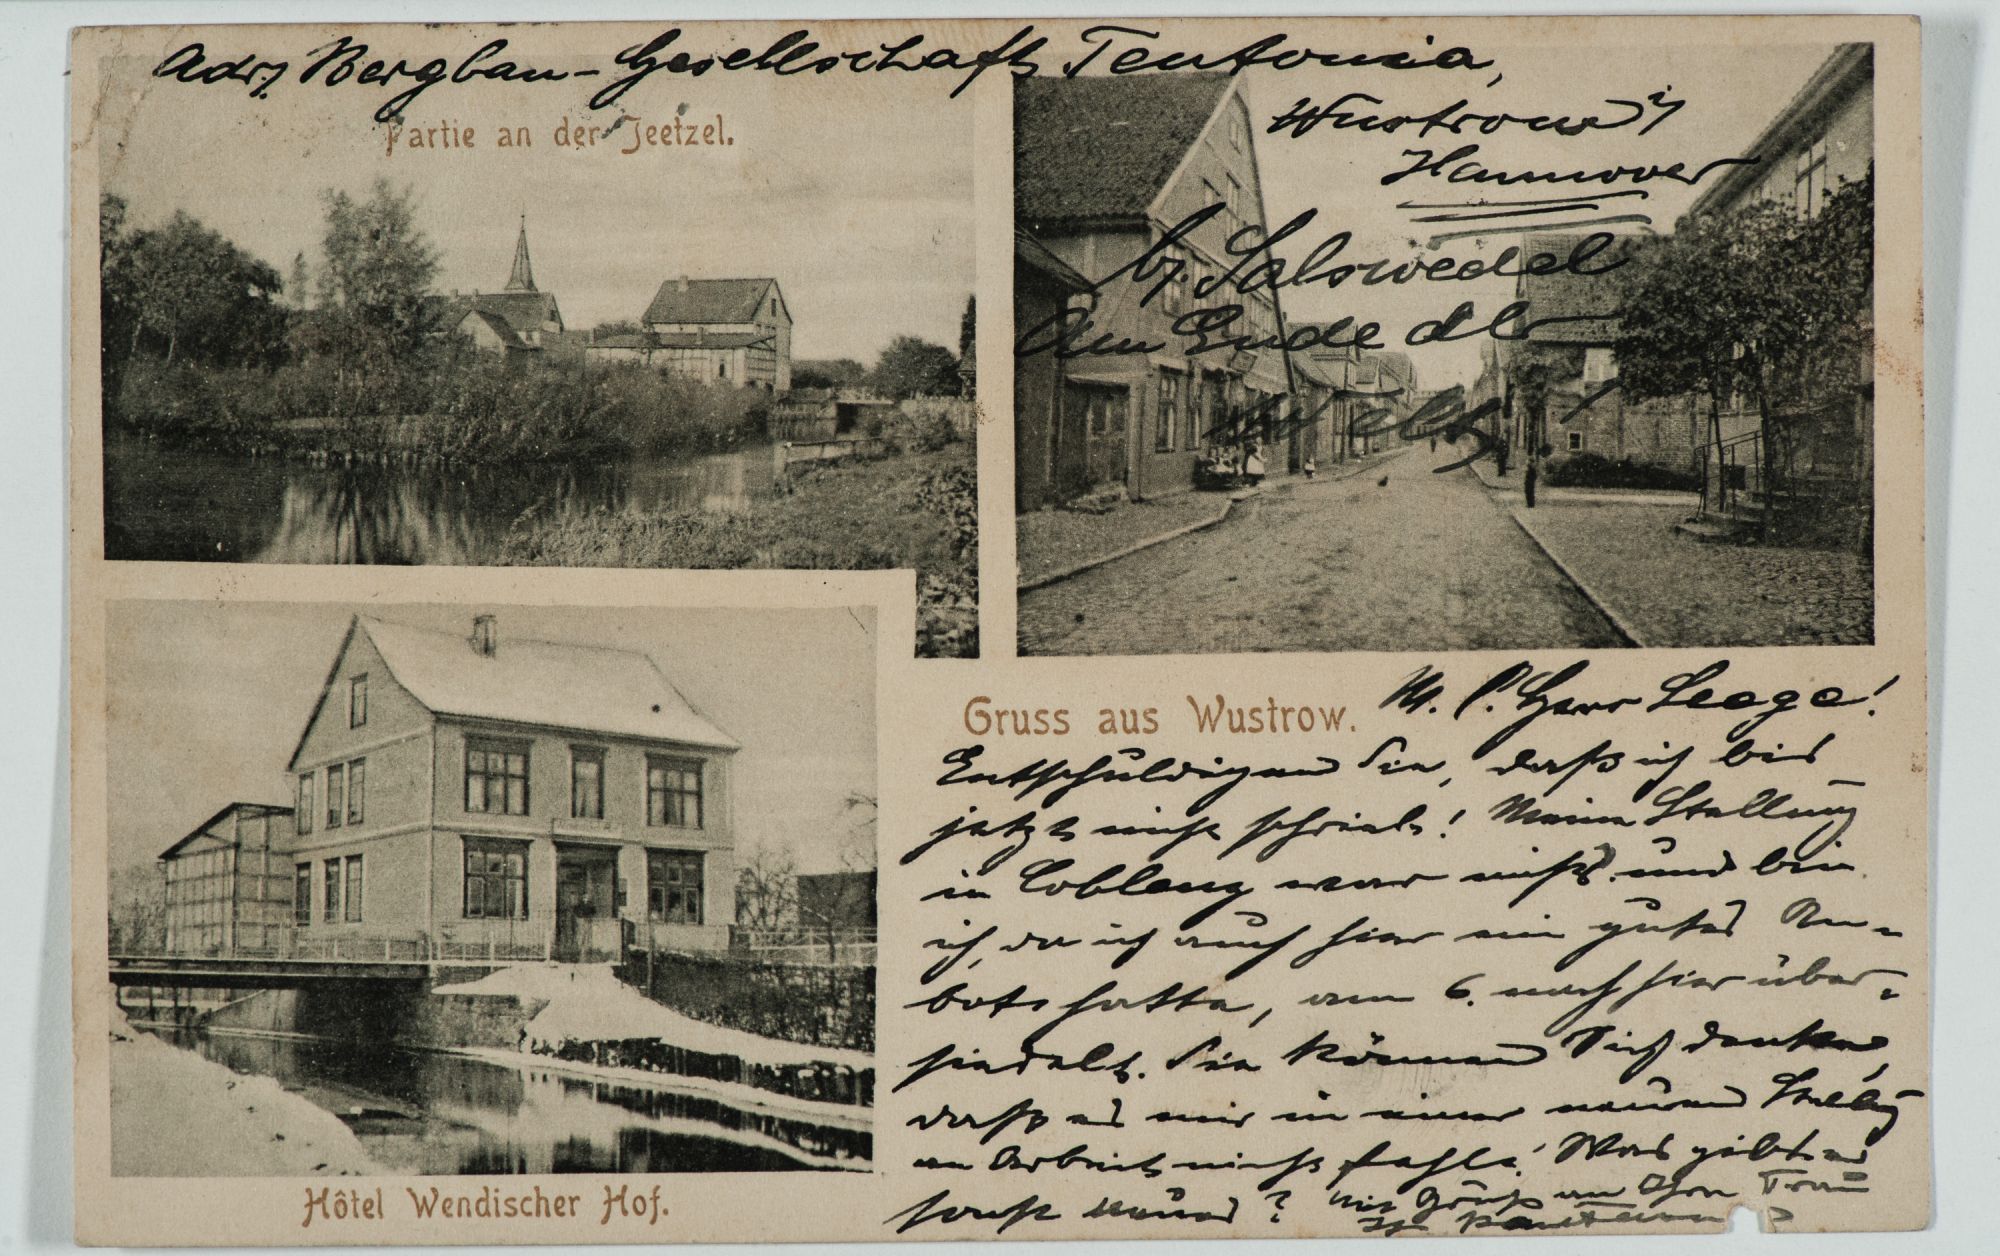 Adr. Bergbau-Gesellschaft Teutonia,
Wustrow i/
Hannover
b/ Salswedel
Am Ende der
Welt!
Partie an der Jeetzel.
Gruss aus Wustrow.
M. l. Herr Leege!
Entschuldigen Sie, daß ich bis
jetzt nicht schrieb! Meine Stellung
in Coblenz war nichts und bin
ich, da ich auch hier ein gutes An-
bot hatte, am 6. nach hier über-
siedelt. Sie können Sich denken,
daß es mir in einer neuen Stellg
an Arbeit nicht fehlt! Was gibt es
sonst Neues? Mit Gruß an Ihre Frau
Ihr
Hôtel Wendischer Hof.